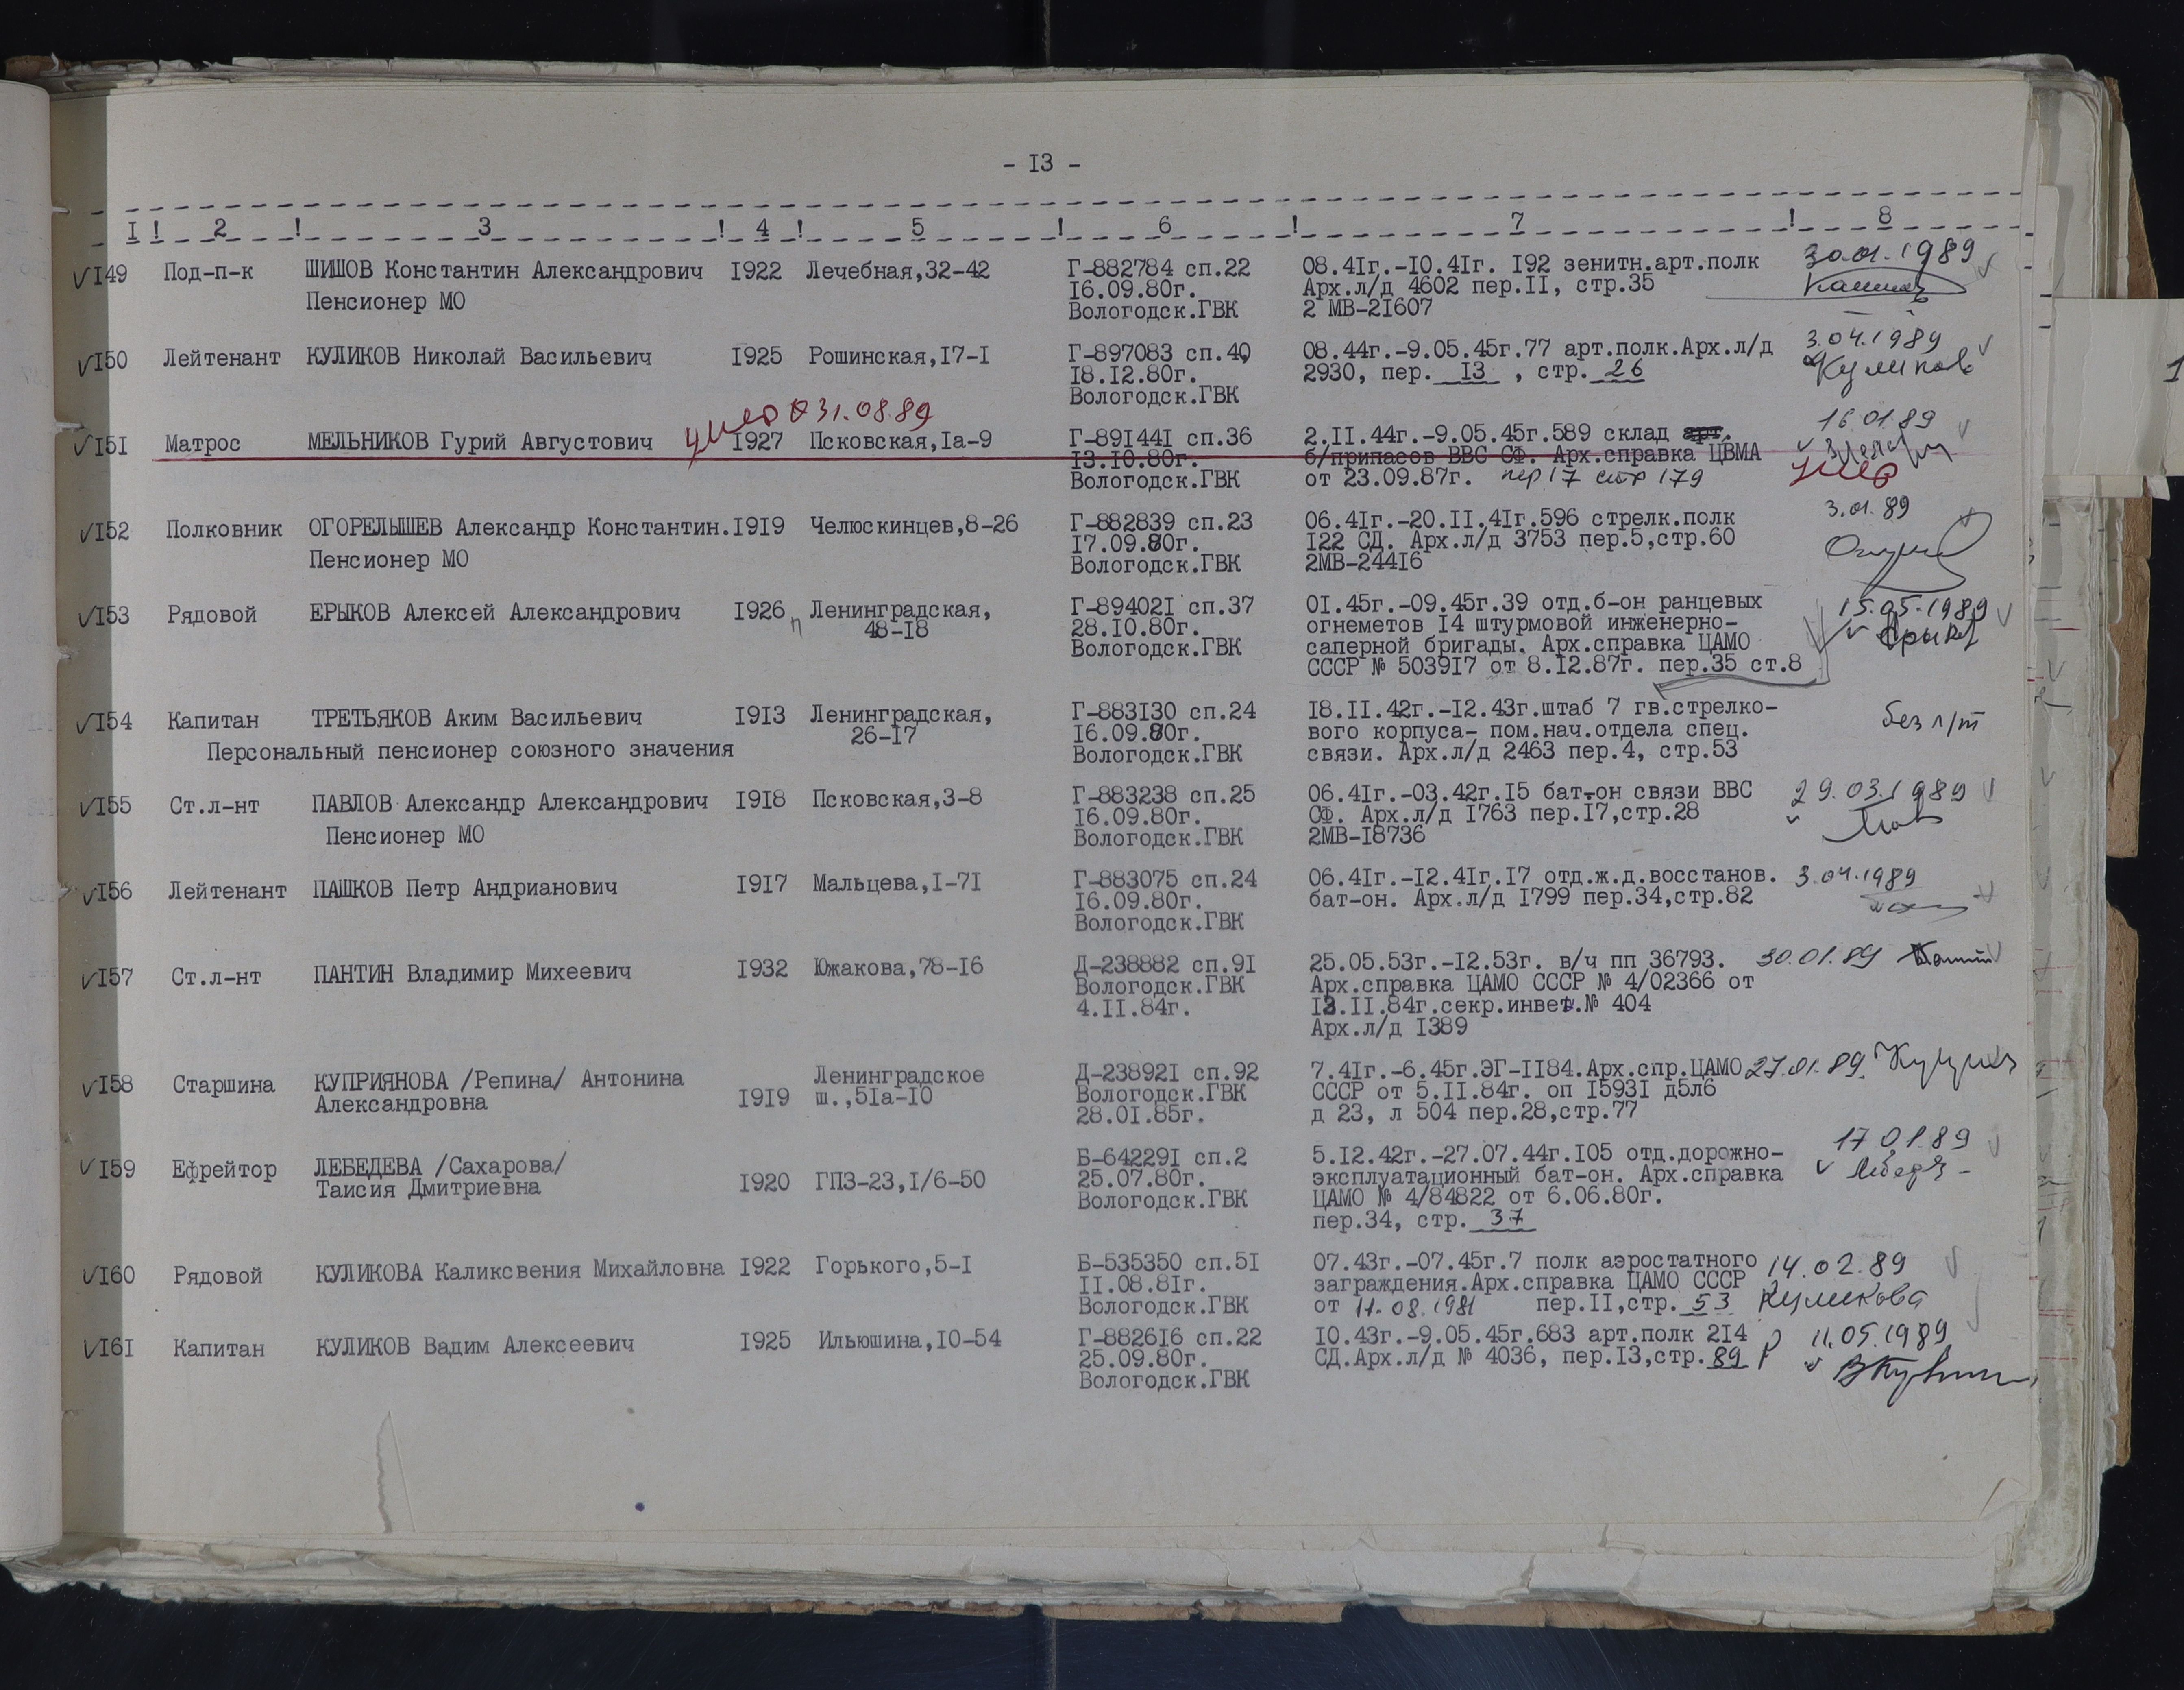 - I3 -
I ! 2 ! 3 ! 4 ! 5 ! 6 ! 7 ! 8
I49 Под-п-к ШИШОВ Константин Александрович I922 Лечебная,32-42 Г-882784 сп.22 08.4Iг.-I0.4Iг. I92 зенитн.арт.полк 30.01.1989
Пенсионер МО I6.09.80г. Арх.л/д 4602 пер.II, стр.35
Вологодск.ГВК 2 МВ-2I607
I50 Лейтенант КУЛИКОВ Николай Васильевич I925 Рошинская,I7-I Г-897083 сп.40 08.44г.-9.05.45г.77 арт.полк.Арх.л/д 3.04.1989
I8.I2.80г. 2930, пер. I3 , стр. 26 Куликов
Вологодск.ГВК
умер 31.08.89
I5I Матрос МЕЛЬНИКОВ Гурий Августович I927 Псковская,Iа-9 Г-89I44I сп.36 2.II.44г.-9.05.45г.589 склад арт. 16.01.89
I3.I0.80г. б/припасов ВВС СФ. Арх.справка ЦВМА
Вологодск.ГВК от 23.09.87г. пер 17 стр 179 умер
I52 Полковник ОГОРЕЛЫШЕВ Александр Константин.I9I9 Челюскинцев,8-26 Г-882839 сп.23 06.4Iг.-20.II.4Iг.596 стрелк.полк 3.01.89
Пенсионер МО I7.09.80г. I22 СД. Арх.л/д 3753 пер.5,стр.60
Вологодск.ГВК 2МВ-244I6
I53 Рядовой ЕРЫКОВ Алексей Александрович I926 Ленинградская, Г-89402I сп.37 0I.45г.-09.45г.39 отд.б-он ранцевых 15.05.1989
48-I8 28.I0.80г. огнеметов I4 штурмовой инженерно-
Вологодск.ГВК саперной бригады. Арх.справка ЦАМО
СССР № 5039I7 от 8.I2.87г. пер.35 ст.8
I54 Капитан ТРЕТЬЯКОВ Аким Васильевич I9I3 Ленинградская, Г-883I30 сп.24 I8.II.42г.-I2.43г.штаб 7 гв.стрелко- без л/т
Персональный пенсионер союзного значения 26-I7 I6.09.80г. вого корпуса- пом.нач.отдела спец.
Вологодск.ГВК связи. Арх.л/д 2463 пер.4, стр.53
I55 Ст.л-нт ПАВЛОВ Александр Александрович I9I8 Псковская,3-8 Г-883238 сп.25 06.4Iг.-03.42г.I5 бат-он связи ВВС 29.03.1989
Пенсионер МО I6.09.80г. СФ. Арх.л/д I763 пер.I7,стр.28
Вологодск.ГВК 2МВ-I8736
I56 Лейтенант ПАШКОВ Петр Андрианович I9I7 Мальцева,I-7I Г-883075 сп.24 06.4Iг.-I2.4Iг.I7 отд.ж.д.восстанов. 3.04.1989
I6.09.80г. бат-он. Арх.л/д I799 пер.34,стр.82
Вологодск.ГВК
I57 Ст.л-нт ПАНТИН Владимир Михеевич I932 Южакова,78-I6 Д-238882 сп.9I 25.05.53г.-I2.53г. в/ч пп 36793. 30.01.89
Вологодск.ГВК Арх.справка ЦАМО СССР № 4/02366 от
4.II.84г. I3.II.84г.секр.инвет.№ 404
Арх.л/д I389
I58 Старшина КУПРИЯНОВА /Репина/ Антонина Александровна I9I9 Ленинградское ш.,5Iа-I0 Д-23892I сп.92 7.4Iг.-6.45г.ЭГ-II84.Арх.спр.ЦАМО 27.01.89.
Вологодск.ГВК СССР от 5.II.84г. оп I593I д5л6
28.0I.85г. д 23, л 504 пер.28,стр.77
I59 Ефрейтор ЛЕБЕДЕВА /Сахарова/ Таисия Дмитриевна I920 ГПЗ-23,I/6-50 Б-64229I сп.2 5.I2.42г.-27.07.44г.I05 отд.дорожно- 17.01.89
25.07.80г. эксплуатационный бат-он. Арх.справка
Вологодск.ГВК ЦАМО № 4/84822 от 6.06.80г.
пер.34, стр. 37
I60 Рядовой КУЛИКОВА Каликсвения Михайловна I922 Горького,5-I Б-535350 сп.5I 07.43г.-07.45г.7 полк аэростатного 14.02.89
II.08.8Iг. заграждения.Арх.справка ЦАМО СССР
Вологодск.ГВК от 11.08.1981 пер.II,стр. 53 Куликова
I6I Капитан КУЛИКОВ Вадим Алексеевич I925 Ильюшина,I0-54 Г-8826I6 сп.22 I0.43г.-9.05.45г.683 арт.полк 2I4 11.05.1989
25.09.80г. СД.Арх.л/д № 4036, пер.I3,стр. 89
Вологодск.ГВК